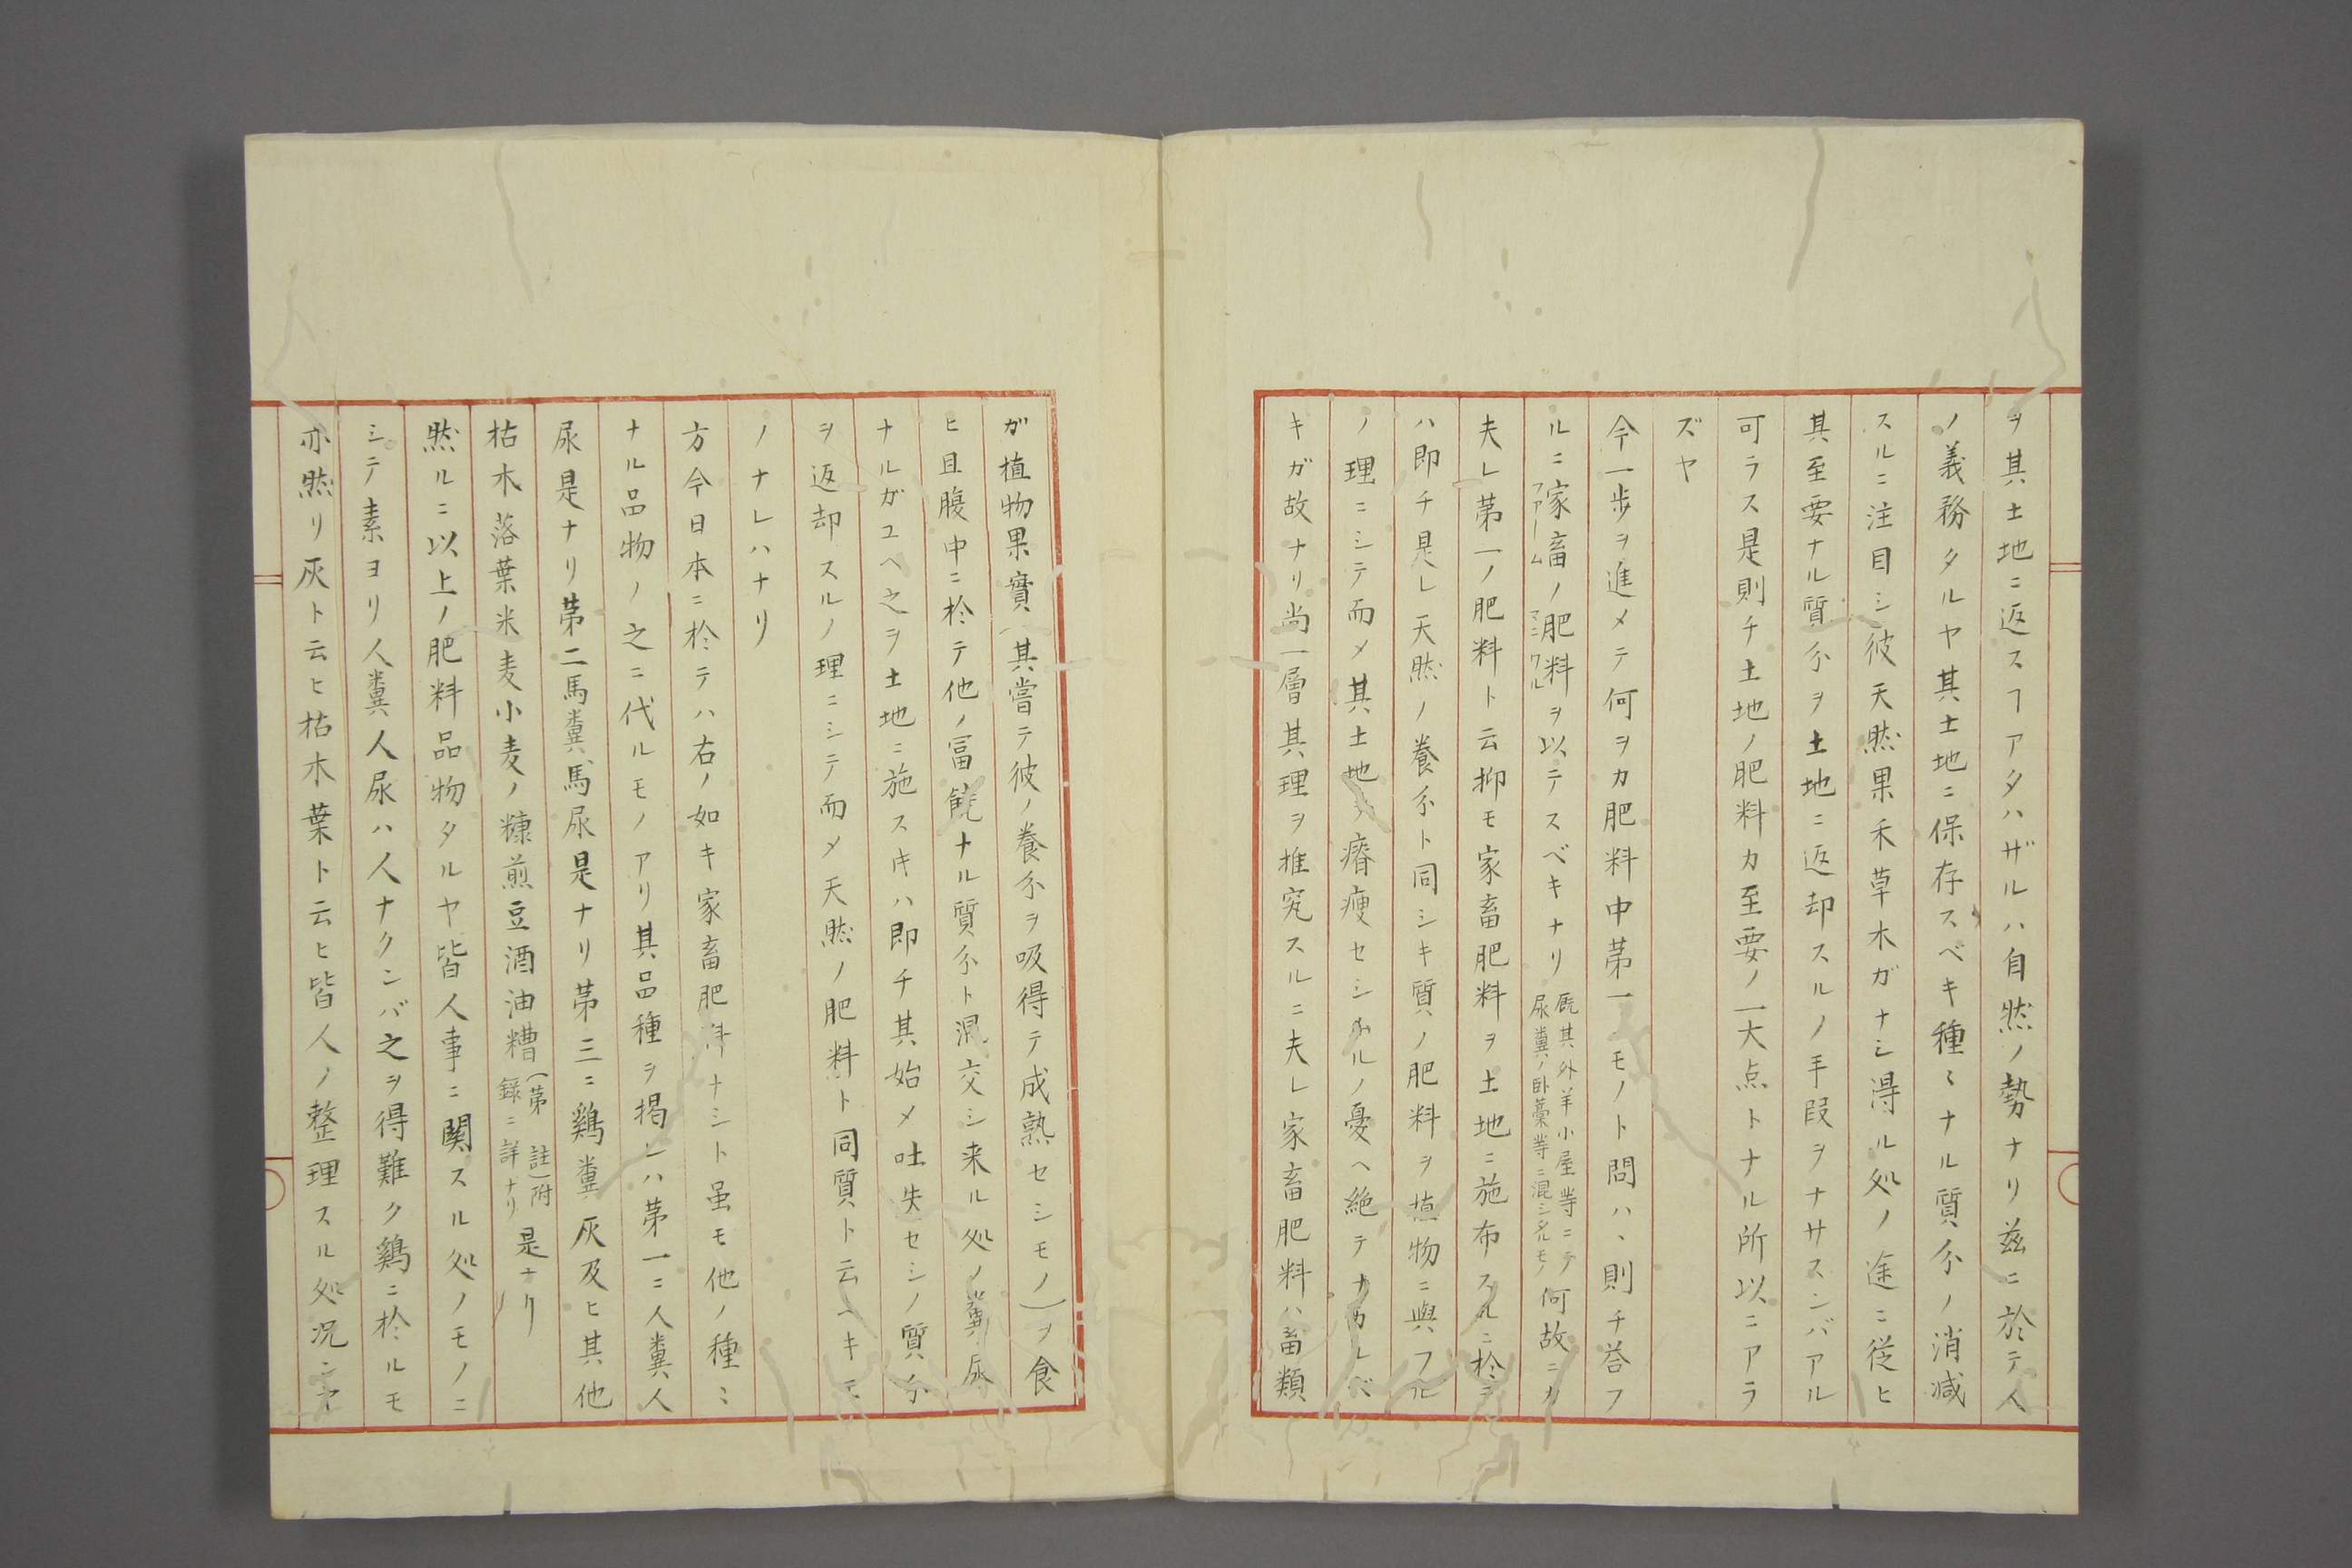 ヲ其土地ニ返スヿアタハザルハ自然ノ勢ナリ茲ニ於テ人
ノ義務タルヤ其土地ニ保存スベキ種々ナル質分ノ消减
スルニ注目シ彼天然果禾草木ガナシ得ル処ノ途ニ従ヒ
其至要ナル質分ヲ土地ニ返却スルノ手段ヲナサスンバアル
可ラス是則チ土地ノ肥料カ至要ノ一大点トナル所以ニアラ
ズヤ
今一歩ヲ進メテ何ヲカ肥料中苐一モノト問ハヽ則チ荅フ
ルニ家畜ノ肥料ヲ以テスベキナリ
ファーム
マニワル
厩其外羊小屋等ニテ
尿糞ノ卧藁等ニ混シタルモノ
何故ニカ
夫レ苐一ノ肥料ト云抑モ家畜肥料ヲ土地ニ施布スルニ於テ
ハ即チ是レ天然ノ養分ト同シキ質ノ肥料ヲ植物ニ與フル
ノ理ニシテ而メ其土地ヲ瘠痩セシムルノ憂ヘ絶テナカルベ
キガ故ナリ尚一層其理ヲ推究スルニ夫レ家畜肥料ハ畜類
ガ植物果實(其嘗テ彼ノ養分ヲ吸得テ成熟セシモノ)ヲ食
ヒ且腹中ニ於テ他ノ冨饒ナル質分ト混交シ来ル処ノ糞尿
ナルガユヘ之ヲ土地ニ施スキハ即チ其始メ吐失セシノ質分
ヲ返却スルノ理ニシテ而メ天然ノ肥料ト同質ト云ヘキモ
ノナレハナリ
方今日本ニ於テハ右ノ如キ家畜肥料ナシト虽モ他ノ種ミ
ナル品物ノ之ニ代ルモノアリ其品種ヲ掲レハ苐一ニ人糞人
尿是ナリ苐二馬糞馬尿是ナリ苐三ニ鶏糞灰及ヒ其他
枯木落葉米麦小麦ノ糠煎豆酒油糟
(苐　註)附
録ニ詳ナリ
是ナリ
然ルニ以上ノ肥料品物タルヤ皆人事ニ関スル処ノモノニ
シテ素ヨリ人糞人尿ハ人ナクンバ之ヲ得難ク鶏ニ於ルモ
亦然リ灰ト云ヒ枯木葉ト云ヒ皆人ノ整理スル処况ンヤ